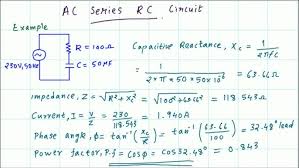 AC Series RC Circuit
Example
R = 100Ω
C = 50μF
230V, 50Hz
Capacitive Reactance, Xc = 1 / 2πfC
= 1 / 2×π×50×50×10⁻⁶ = 63.66Ω
impedance, Z = √R²+Xc² = √100²+63.66² = 118.543Ω
Current, I = V/Z = 230/118.543 = 1.940A
Phase angle, ϕ = tan⁻¹(Xc/R) = tan⁻¹(63.66/100) = 32.48° lead
Power factor, P.f = Cosϕ = Cos32.48° = 0.843